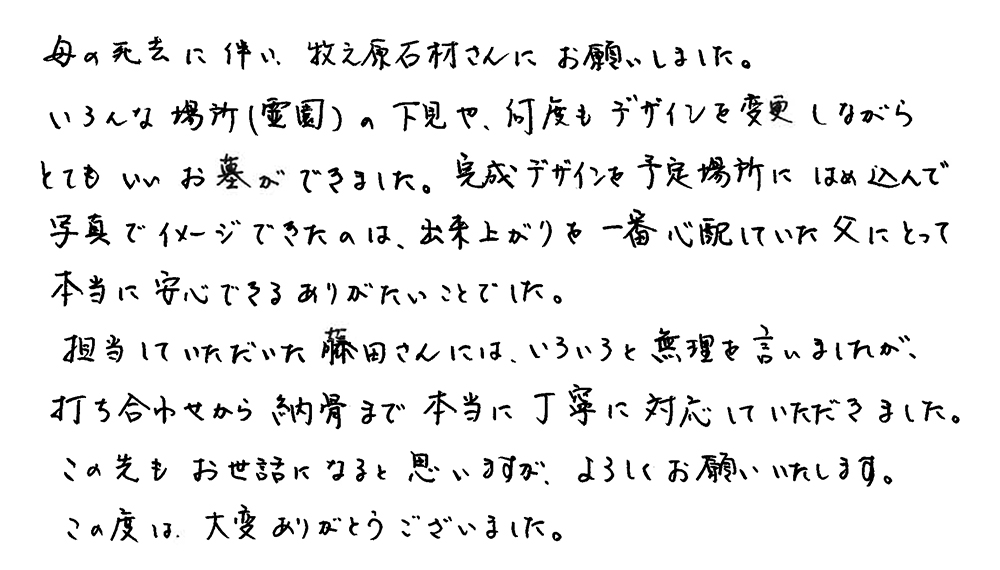 母の死去に伴い、牧之原石材さんにお願いしました。
いろんな場所(霊園)の下見や、何度もデザインを変更しながら
とてもいいお墓ができました。完成デザインを予定場所にはめ込んで
写真でイメージできたのは、出来上がりを一番心配していた父にとって
本当に安心できるありがたいことでした。
担当していただいた藤田さんには、いろいろと無理を言いましたが、
打ち合わせから納骨まで本当に丁寧に対応していただきました。
この先もお世話になると思いますが、よろしくお願いいたします。
この度は、大変ありがとうございました。